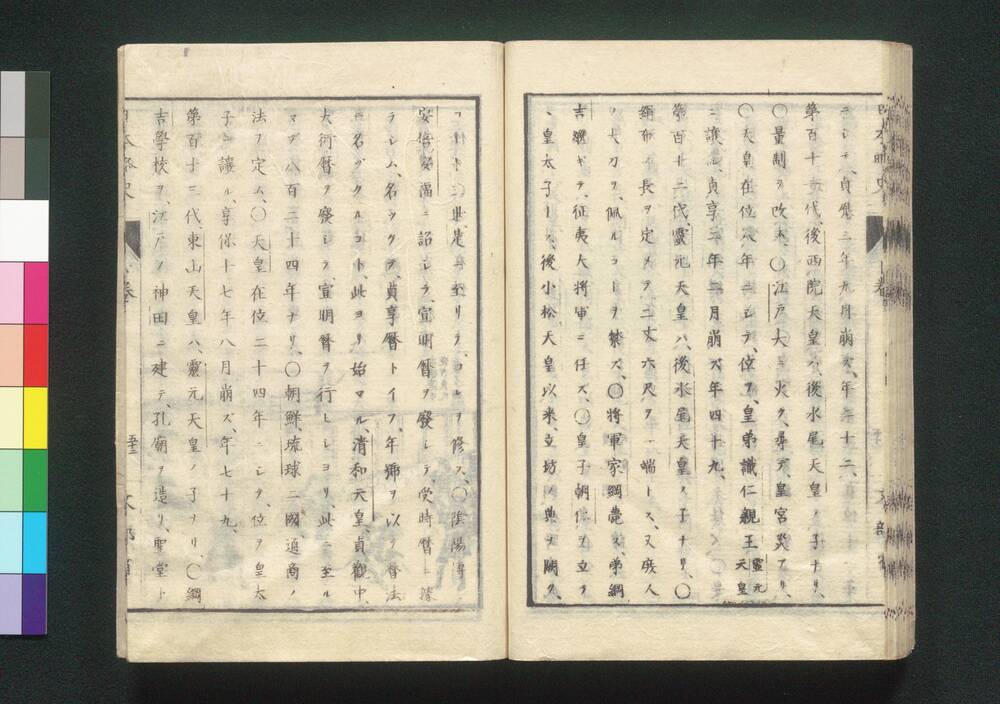 ニシテ、貞應三年九月崩ズ、年二十二、
第百十一代、後西院天皇ハ後水尾天皇ノ子ナリ、
〇量制ヲ改ム、〇江戸大ニ火ク、尋デ、皇宮災アリ、
〇天皇在位八年ニシテ、位ヲ、皇弟識仁親王靈元天皇
ニ讓ル、貞享二年二月崩ズ、年四十九、
第百十二代、靈元天皇ハ、後水尾天皇ノ子ナリ、〇
絹布ノ長ヲ定メテ、二丈六尺ヲ一端トス、又庶人
ノ大刀ヲ佩ルヿヲ禁ズ、〇將軍家綱薨ズ、弟綱
吉繼ギテ、征夷大將軍ニ任ズ、〇皇子朝仁ヲ立テ
、皇太子トス、後小松天皇以來、立坊ノ典ヲ闕ク、
三世、是ニ至リテ、コレヲ修ス、〇陰陽頭
安倍安福ニ詔シテ、宣明曆ヲ廢シテ受時曆ニ據
ラシム、名ヅケテ、貞享曆トイフ、年號ヲ以テ曆法
ニ名ヅクルコト、此ヨリ始マル、清和天皇、貞觀中、
大衍曆ヲ廢シテ、宣明曆ヲ行ヒシヨリ、此ニ至ル
マデ八百二十四年ナリ、〇朝鮮琉球二國通商ノ
法ヲ定ム、〇天皇在位二十四年ニシテ、位ヲ皇太
子ニ讓ル、享保十七年八月崩ズ、年七十九、
第百十三代、東山天皇ハ、靈元天皇ノ子ナリ、〇綱
吉學校ヲ、江戸ノ神田ニ建テ、孔廟ヲ造リ、聖堂ト